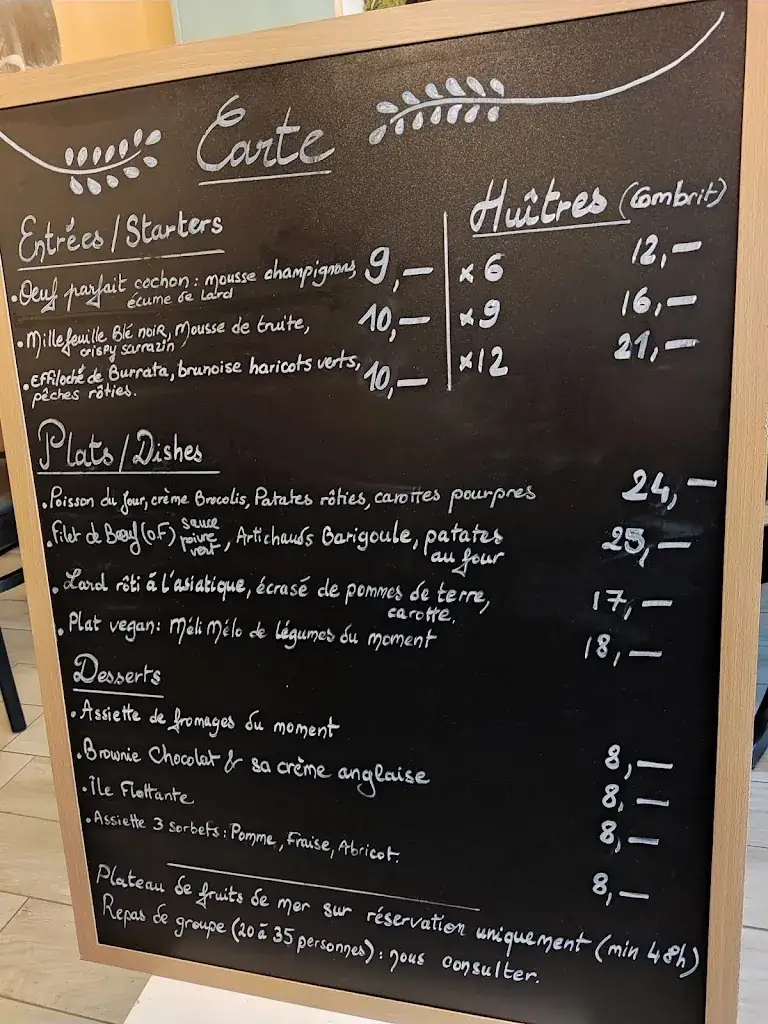 Carte
Entrées / Starters
• Oeuf parfait cochon : mousse champignons, 9,—
écume de lard
• Millefeuille Blé noir, Mousse de truite, 10,—
crispy sarrazin
• Effiloché de Burrata, brunoise haricots verts, 10,—
pêches rôties.
Huîtres (Combrit)
x 6 12,—
x 9 16,—
x 12 21,—
Plats / Dishes
• Poisson du jour, crème Brocolis, Patates rôties, carottes pourpres 24,—
• Filet de Bœuf (O.F) sauce poivre vert, Artichauds Barigoule, patates 25,—
au four
• Lard rôti à l'asiatique, écrasé de pommes de terre, 17,—
carotte.
• Plat vegan : Méli Mélo de légumes du moment 18,—
Desserts
• Assiette de fromages du moment 8,—
• Brownie Chocolat & sa crème anglaise 8,—
• Île Flottante 8,—
• Assiette 3 sorbets : Pomme, Fraise, Abricot. 8,—
Plateau de fruits de mer sur réservation uniquement (min 48h)
Repas de groupe (20 à 35 personnes) : nous consulter.